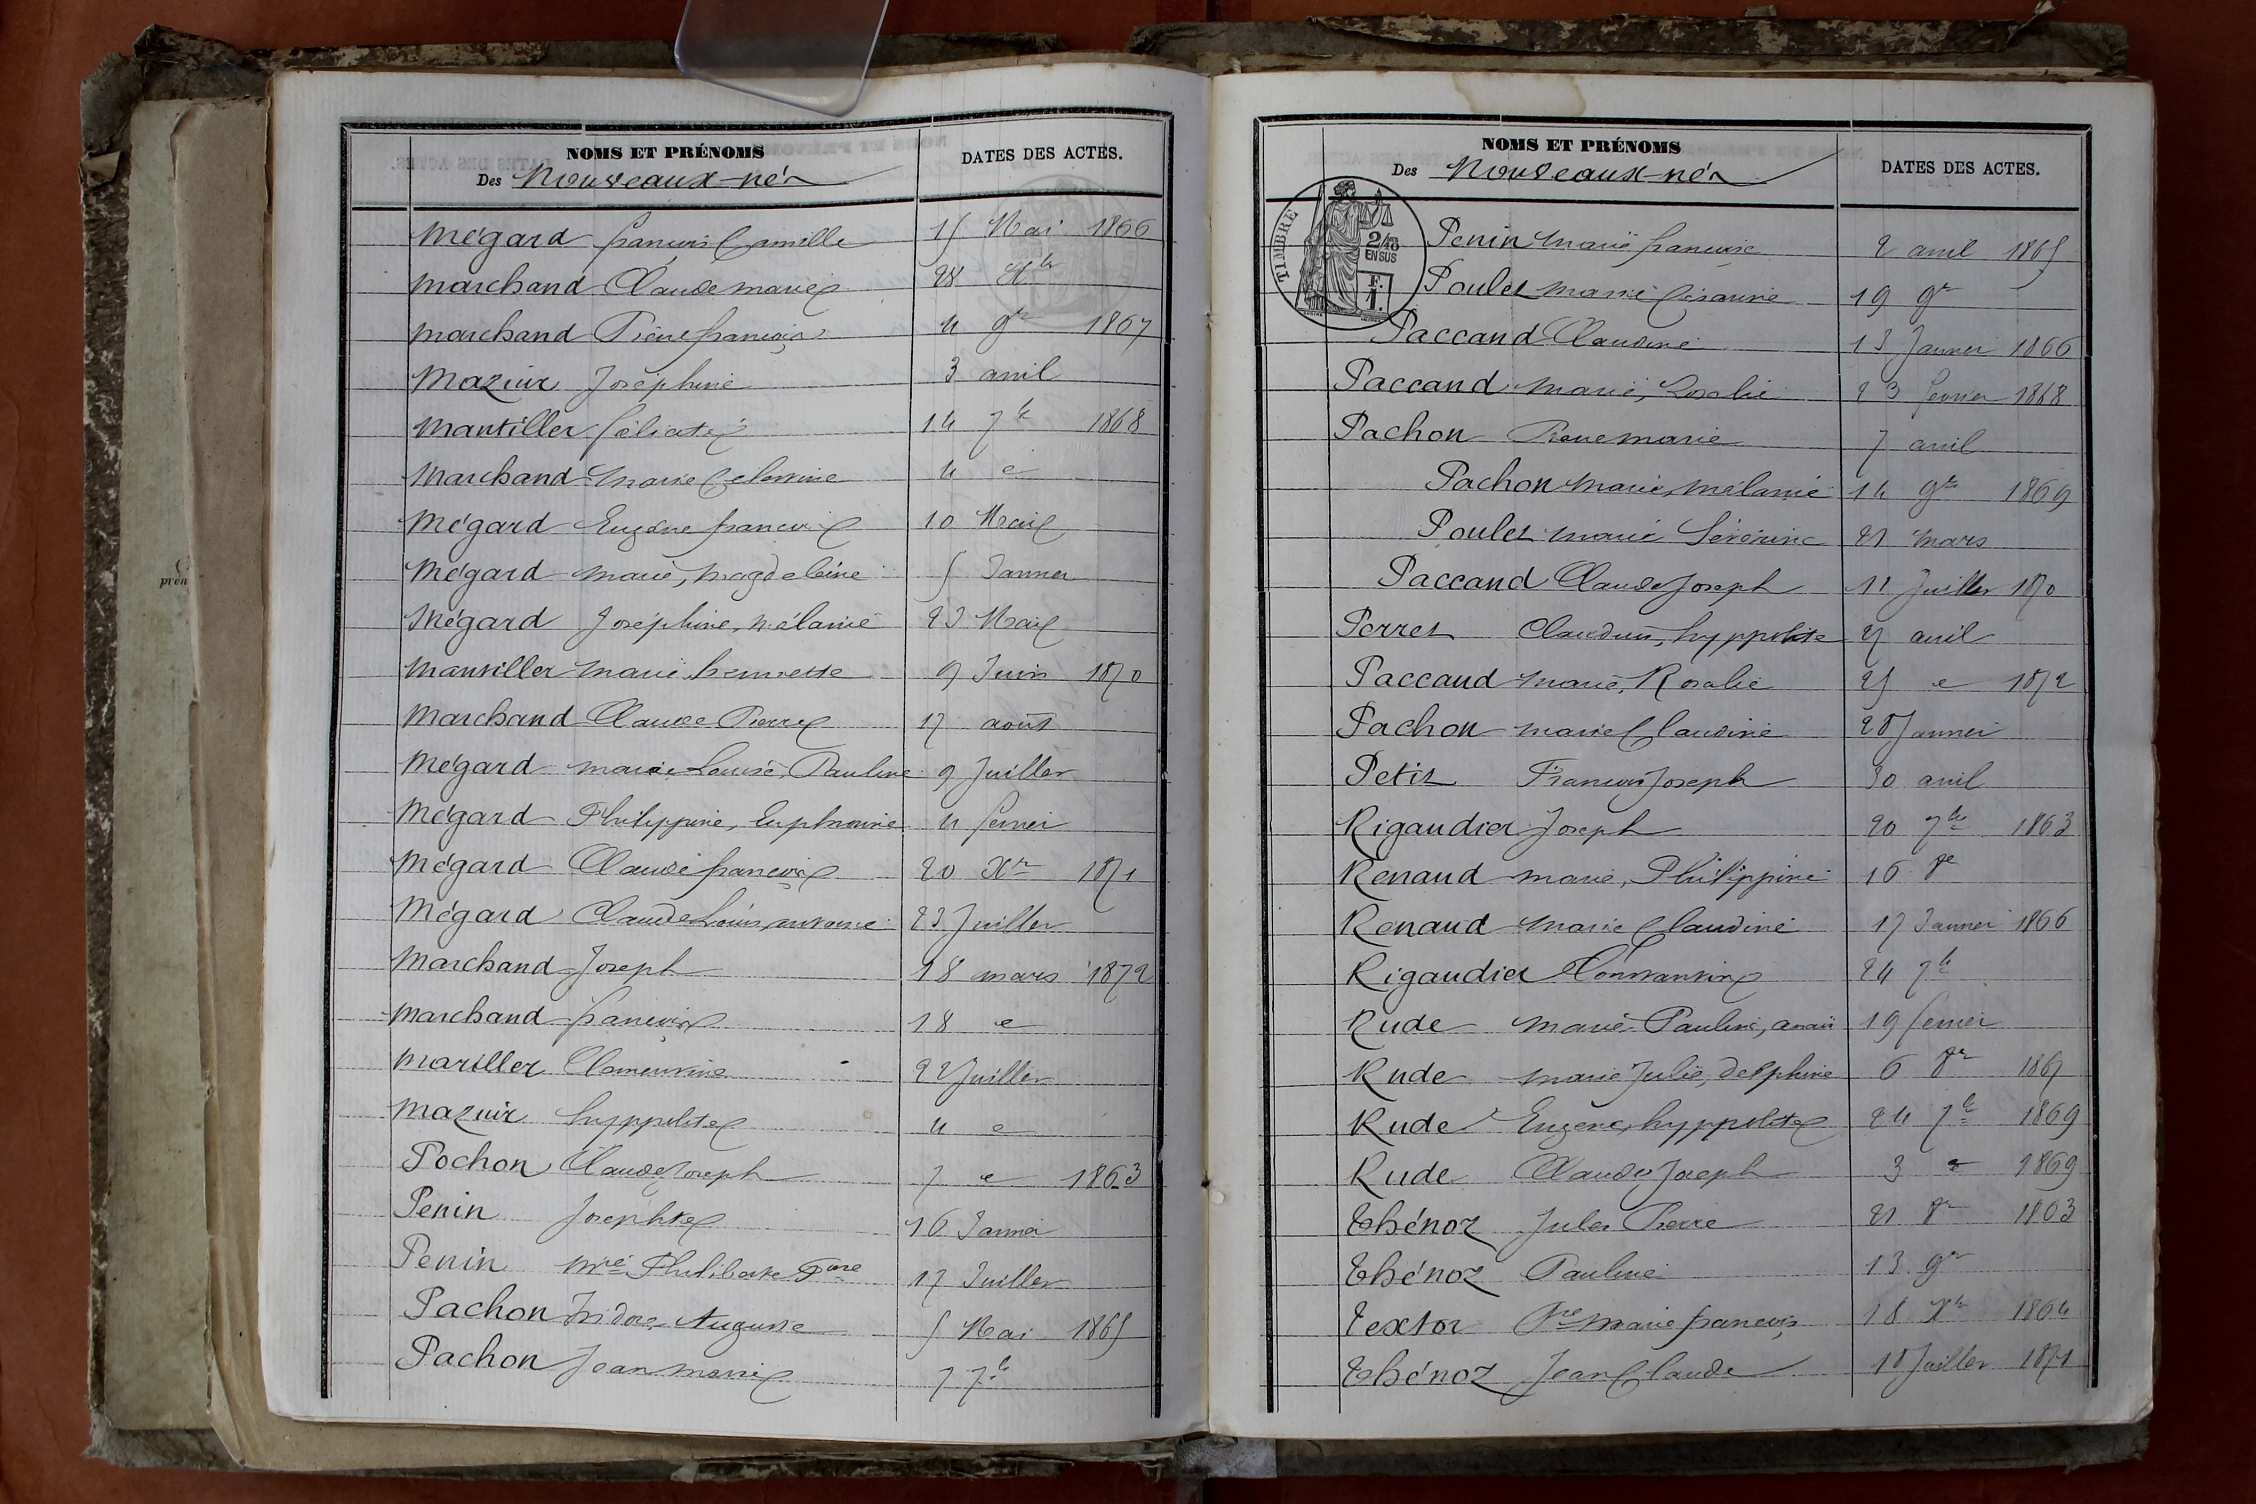 NOMS ET PRÉNOMS
Des Nouveaux-nés
DATES DES ACTES.
Mégard françois Camille 15 Mai 1866
Marchand Claude marie 28 Xbr
Marchand Pierre françois 4 9r 1867
Mazuir Joséphine 3 avril
Mantiller félicité 14 7b 1868
Marchand marie Celestine 4 e
Mégard Eugène françois 10 Mai
Mégard marie, magdeleine 5 Janvier
Mégard Joséphine, mélanie 23 Mai
Mantiller marie henriette 9 Juin 1870
Marchand Claude Pierre 17 août
Mégard marie Louise, Pauline 9 Juillet
Mégard Philippine, Euphrosine 4 fevrier
Mégard Claude françois 20 Xbr 1871
Mégard Claude Louis, antoine 23 Juillet
Marchand Joseph 18 mars 1872
Marchand françois 18 e
Mariller Clementine 22 Juillet
Mazuir hyppolite 4 e
Pochon Claude Joseph 7 e 1863
Penin Josephte 16 Janvier
Penin Mie Philiberte Fcoise 17 Juillet
Pachon Isidore, Auguste 5 Mai 1865
Pachon Jean marie 7 7b
NOMS ET PRÉNOMS
Des Nouveaux-nés
DATES DES ACTES.
TIMBRE
2/10
EN SUS
F.
1.
Penin marie françoise 2 avril 1865
Poulet marie Césarine 19 9r
Paccand Claudine 13 Janvier 1866
Paccand marie, Rosalie 23 fevrier 1868
Pachon Pierre marie 7 avril
Pachon marie, mélanie 14 9r 1869
Poulet marie Séverine 21 mars
Paccand Claude Joseph 11 Juillet 1870
Perret Claudius, hyppolite 27 avril
Paccaud marie, Rosalie 25 e 1872
Pachon marie Claudine 28 Janvier
Petit François Joseph 30 avril
Rigaudier Joseph 20 7br 1863
Renaud marie, Philippine 16 8e
Renaud marie Claudine 17 Janvier 1866
Rigaudier Constantin 24 7b
Rude marie Pauline, anaïs 19 fevrier
Rude marie Julie, delphine 6 8r 1867
Rude Eugène, hyppolite 24 7b 1869
Rude Claude Joseph 3 e 1869
Thénoz Jules Pierre 21 8r 1863
Thénoz Pauline 13 9r
Textor Pre marie françois 18 Xb 1864
Thénoz Jean Claude 18 Juillet 1871